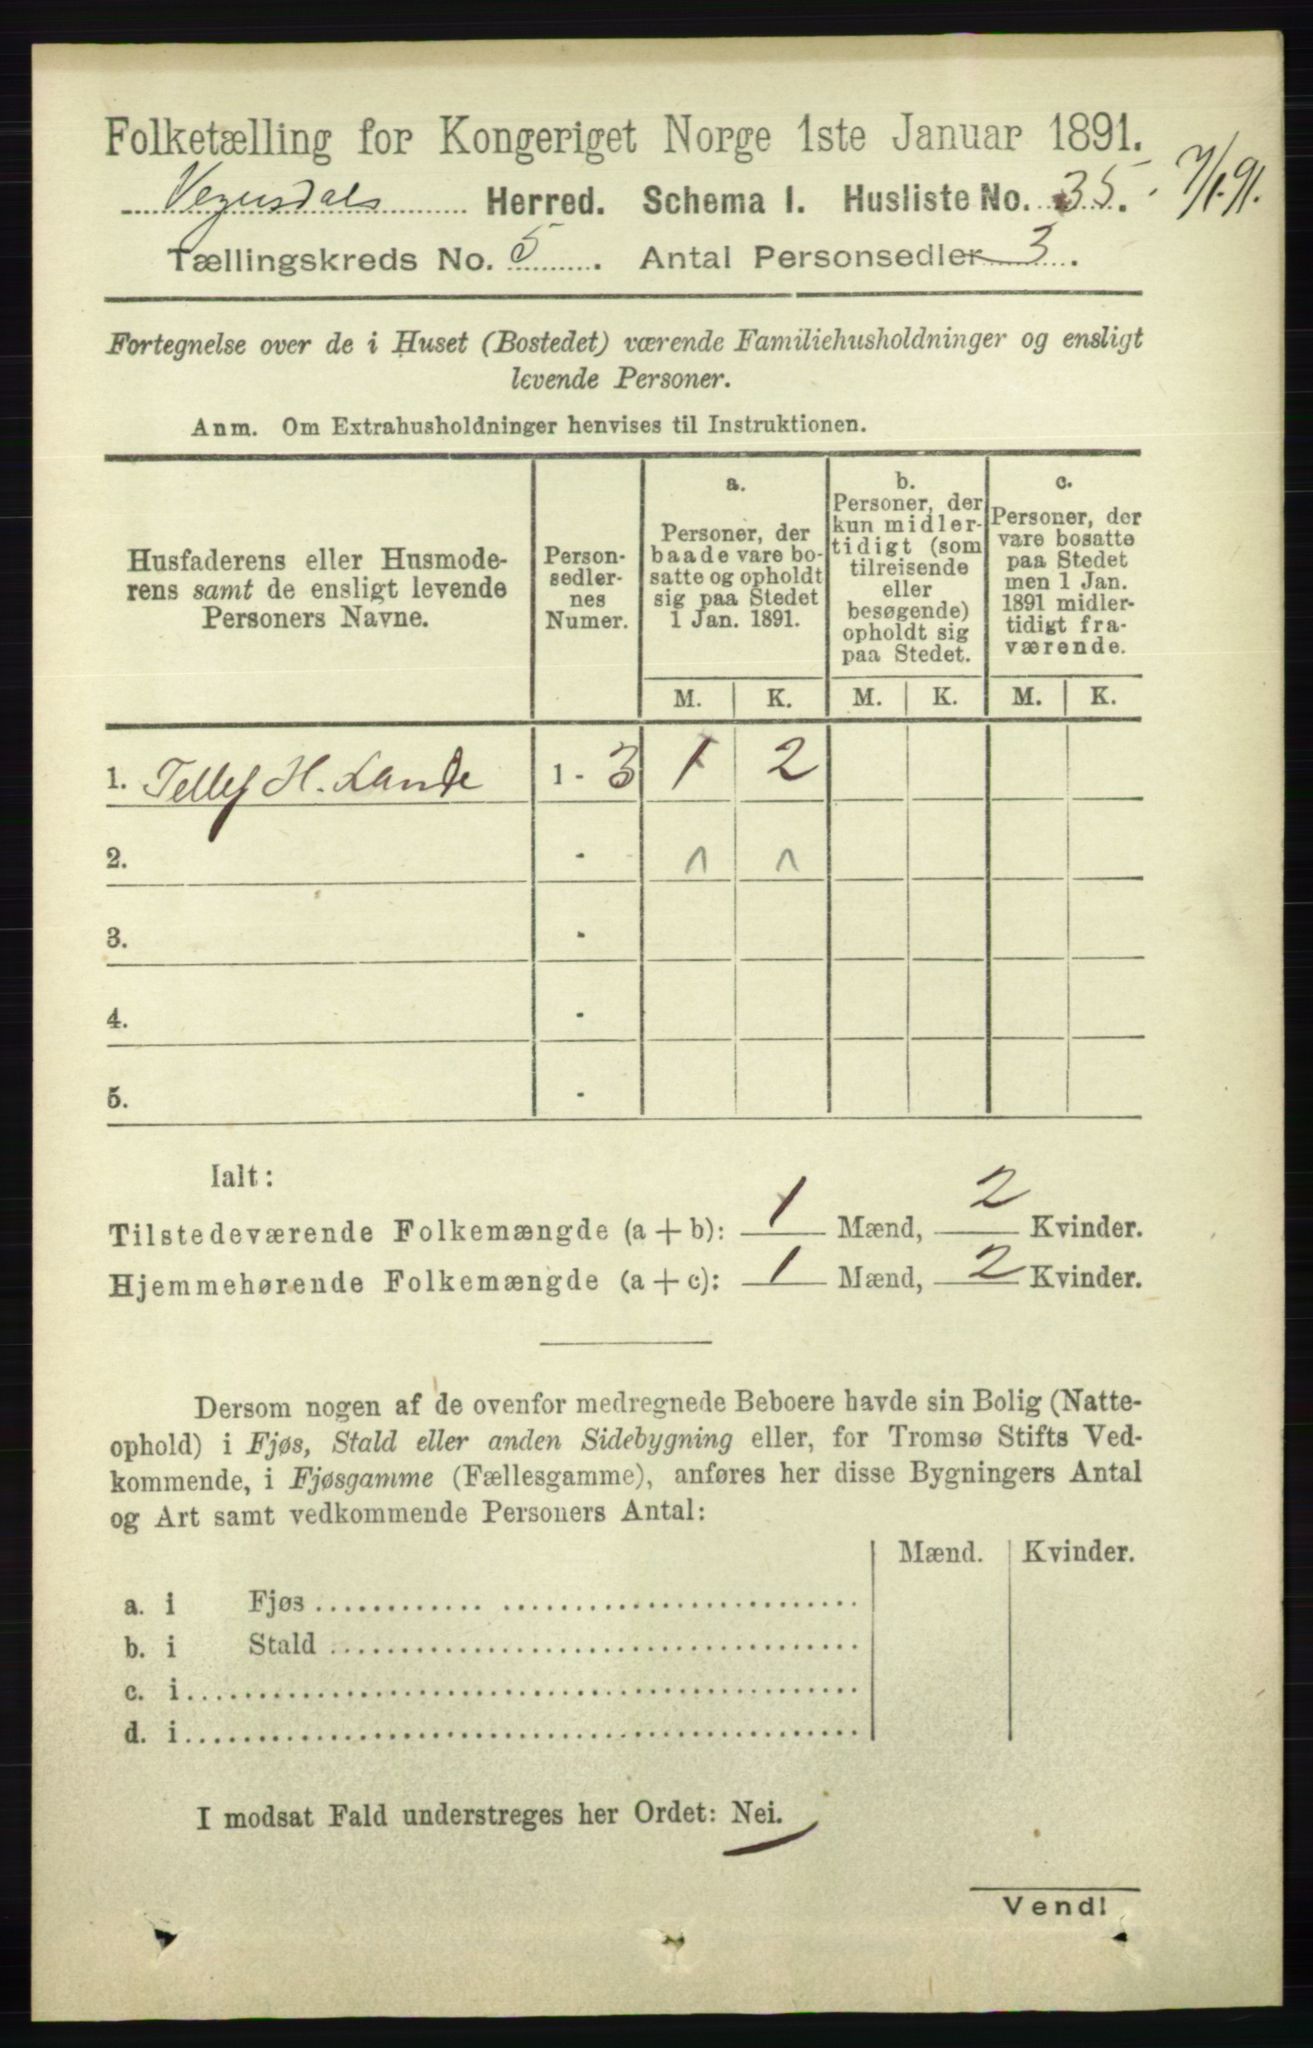 Folketælling for Kongeriget Norge 1ste Januar 1891.
Vegusdals Herred. Schema I. Husliste No. 35. 7/1 91.
Tællingskreds No. 5. Antal Personsedler 3.
Fortegnelse over de i Huset (Bostedet) værende Familiehusholdninger og ensligt
levende Personer.
Anm. Om Extrahusholdninger henvises til Instruktionen.
Husfaderens eller Husmode-
rens samt de ensligt levende
Personers Navne.
Person-
sedler-
nes
Numer.
a.
Personer, der
baade vare bo-
satte og opholdt
sig paa Stedet
1 Jan. 1891.
b.
Personer, der
kun midler-
tidigt (som
tilreisende
eller
besøgende)
opholdt sig
paa Stedet.
c.
Personer, der
vare bosatte
paa Stedet
men 1 Jan.
1891 midler-
tidigt fra-
værende.
M. K. M. K. M. K.
1. Tellef H. Lande 1 - 3 1 2
2. -
3. -
4. -
5. -
Ialt:
Tilstedeværende Folkemængde (a + b): 1 Mænd, 2 Kvinder.
Hjemmehørende Folkemængde (a + c): 1 Mænd, 2 Kvinder.
Dersom nogen af de ovenfor medregnede Beboere havde sin Bolig (Natte-
ophold) i Fjøs, Stald eller anden Sidebygning eller, for Tromsø Stifts Ved-
kommende, i Fjøsgamme (Fællesgamme), anføres her disse Bygningers Antal
og Art samt vedkommende Personers Antal:
Mænd. Kvinder.
a. i Fjøs
b. i Stald
c. i
d. i
I modsat Fald understreges her Ordet: Nei.
Vend!